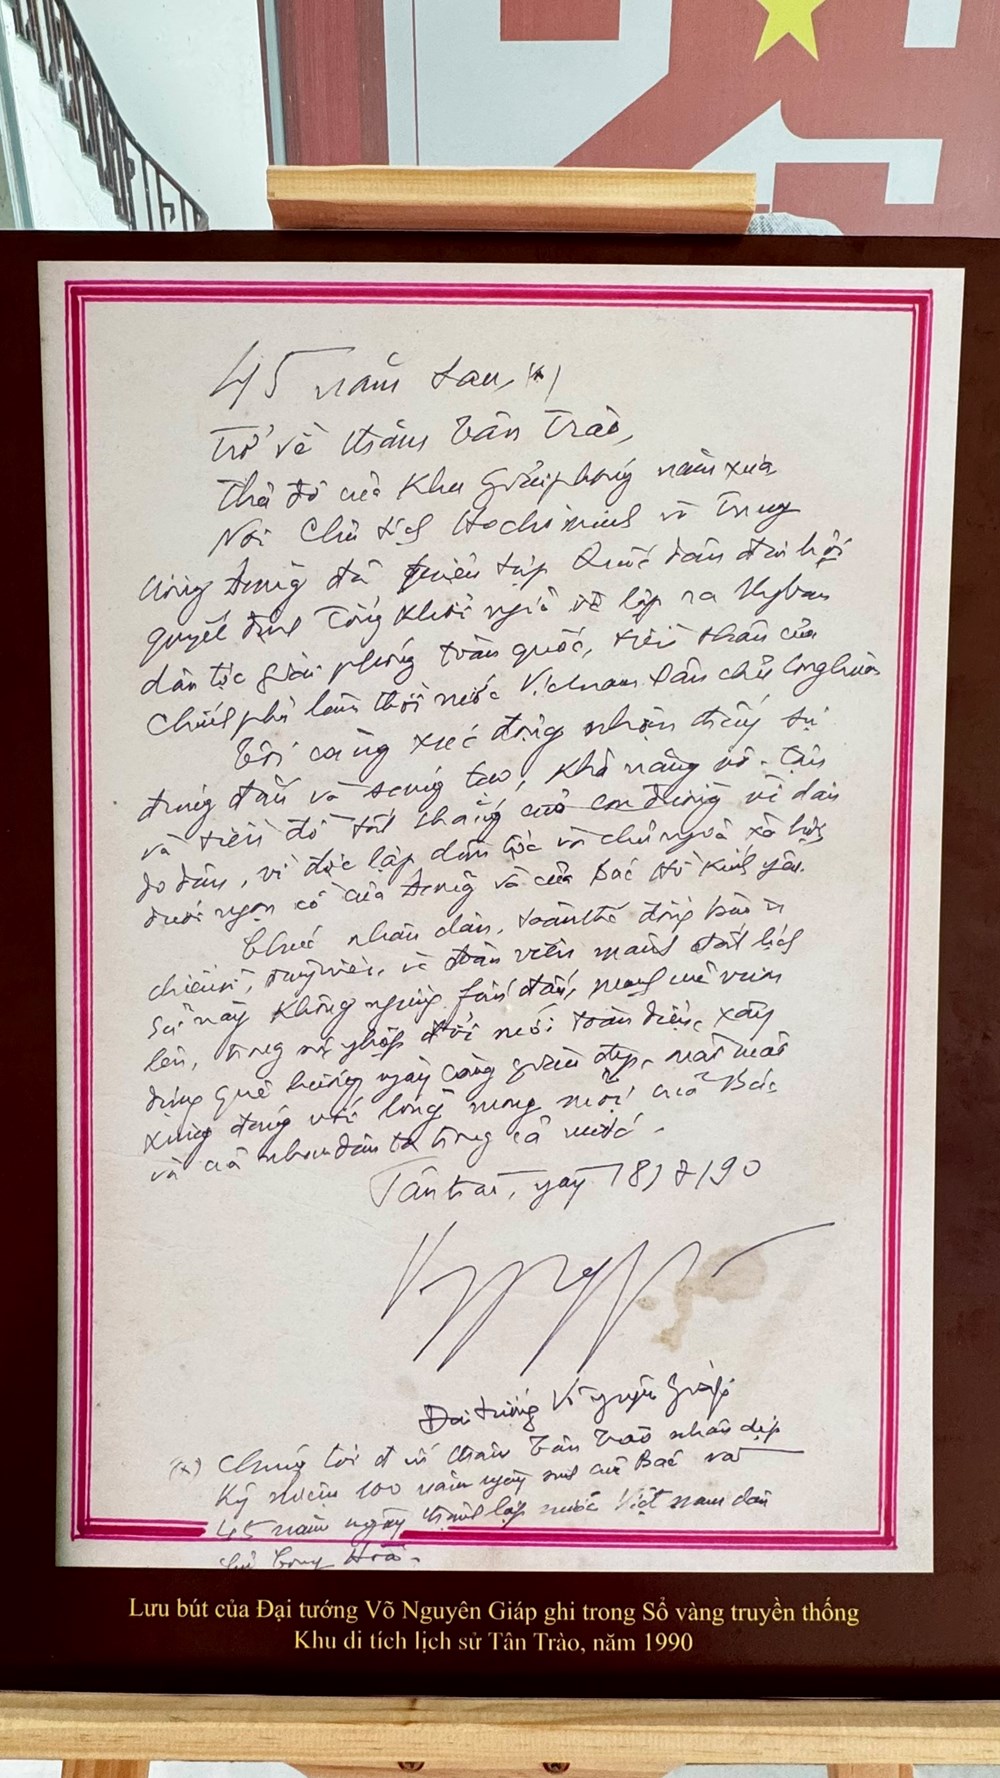 45 năm sau, (*)
Trở về thăm Tân Trào,
Thủ đô của Khu Giải phóng năm xưa
Nơi Chủ tịch Hochiminh và Trung
ương Đảng đã triệu tập Quốc dân đại hội
quyết định Tổng Khởi nghĩa và lập ra Uỷ ban
dân tộc giải phóng toàn quốc, tiền thân của
Chính phủ lâm thời nước Việtnam Dân chủ Cộng hoà
Tôi càng xúc động nhận thấy sự
đúng đắn và sáng tạo, khả năng vô tận
và tiền đồ tất thắng của con đường vì dân
do dân, vì độc lập dân tộc và chủ nghĩa xã hội
dưới ngọn cờ của Đảng và của Bác Hồ Kính yêu.
Chúc nhân dân, toàn thể đồng bào
chiến sĩ, đảng viên, và đoàn viên mảnh đất lịch
sử này không ngừng fấn đấu, mạnh mẽ vươn
lên, trong sự nghiệp đổi mới toàn diện, xây
dựng quê hương ngày càng giàu đẹp, mãi mãi
xứng đáng với lòng mong mỏi của Bác
và của nhân dân ta trong cả nước.
Tân trào, ngày 18/8/90
Đại tướng Võ Nguyên Giáp
(*) Chúng tôi đi về thăm Tân Trào nhân dịp
Kỷ niệm 100 năm ngày sinh của Bác và
45 năm ngày thành lập nước Việt nam dân
chủ Cộng Hoà.
Lưu bút của Đại tướng Võ Nguyên Giáp ghi trong Sổ vàng truyền thống
Khu di tích lịch sử Tân Trào, năm 1990